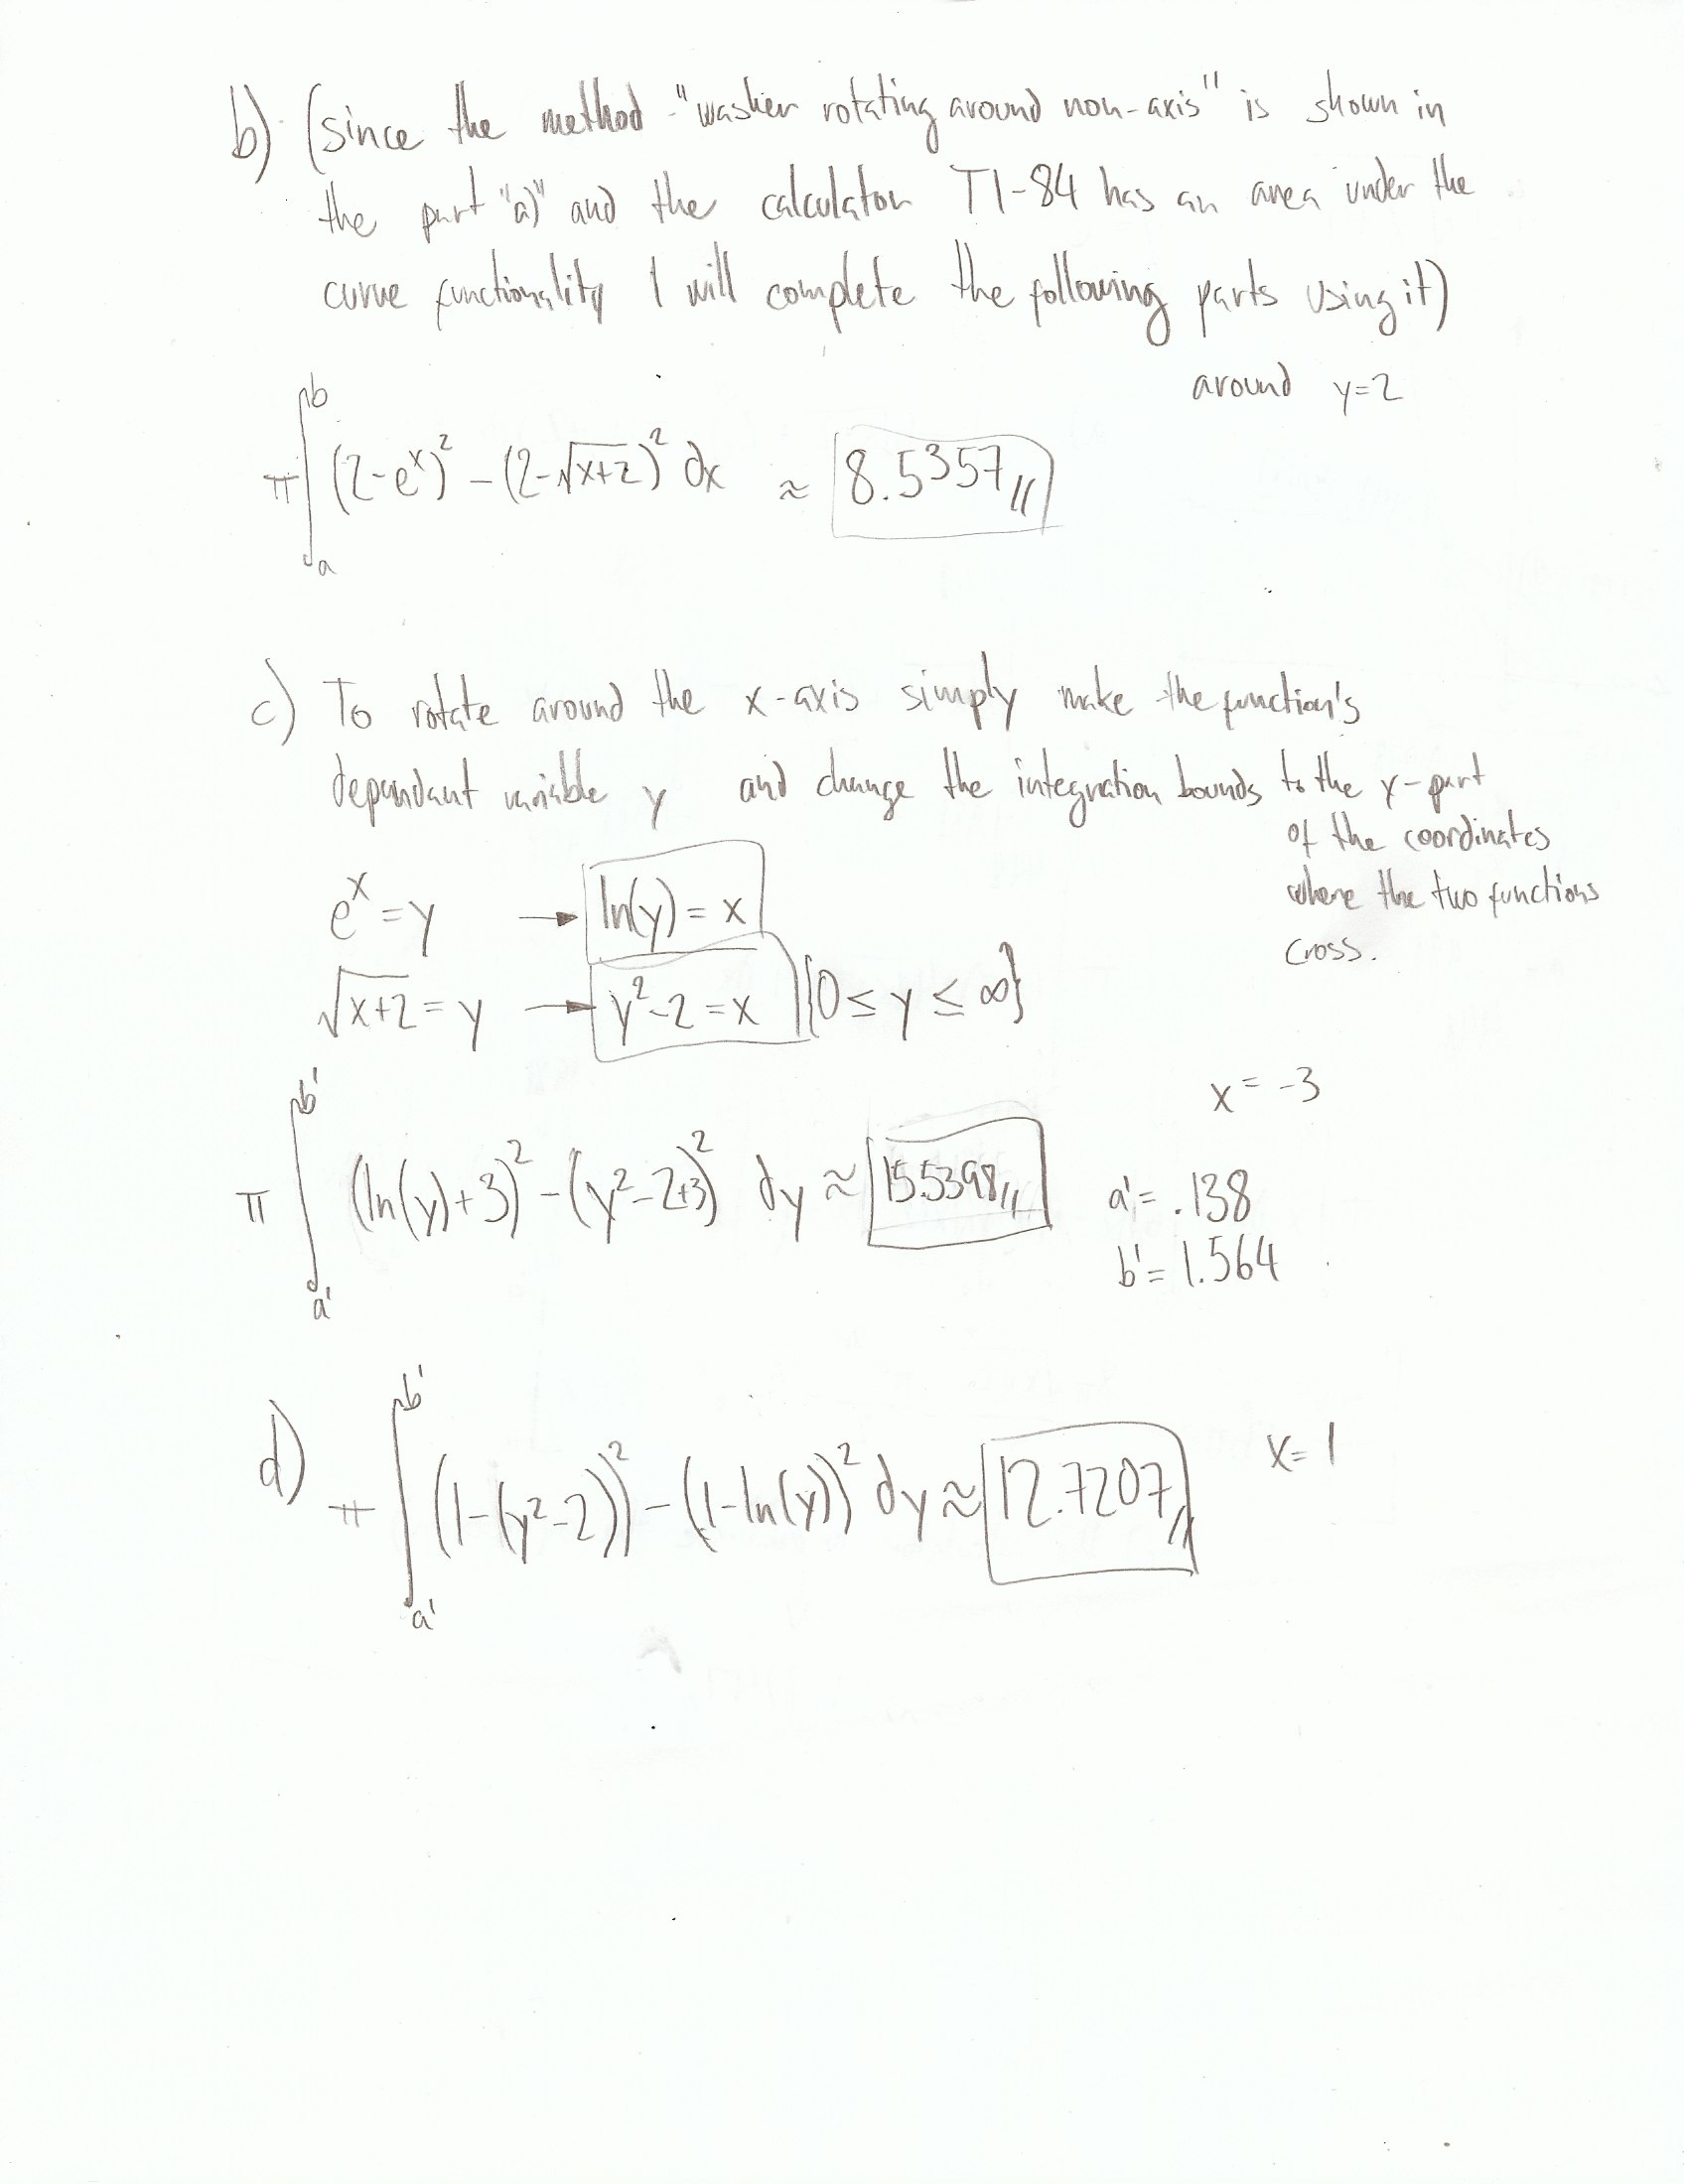 b) (since the method "washer rotating around non-axis" is shown in
the part "a)" and the calculator TI-84 has an area under the
curve functionality I will complete the following parts using it)
around y=2
π∫_a^b (2-e^x)^2 - (2-√(x+2))^2 dx ≈ 8.5357
c) To rotate around the x-axis simply make the function's
dependant variable y and change the integration bounds to the y-part
of the coordinates
where the two functions
cross.
e^x = y → ln(y) = x
√(x+2) = y → y^2-2 = x {0 ≤ y ≤ ∞}
x = -3
π∫_a'^b' (ln(y)+3)^2 - (y^2-2+3)^2 dy ≈ 15.5398
a' = .138
b' = 1.564
d) π∫_a'^b' (1-(y^2-2))^2 - (1-ln(y))^2 dy ≈ 12.7207
x = 1